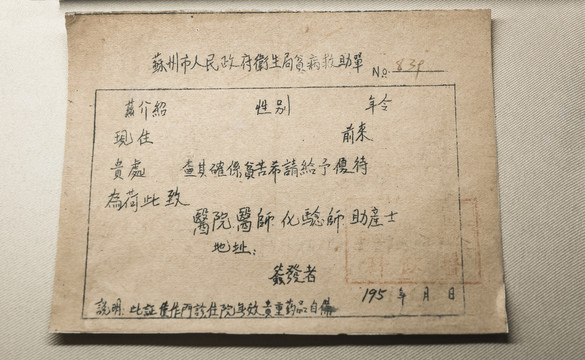 蘇州市人民政府衛生局貧病救助單
No: 839
茲介紹 性别 年令
現住 前来
貴處 查其確係貧苦希請給予優待
為荷此致
醫院醫師化驗師助產士
地址:
簽發者
195 年 月 日
説明: 此証僅作門診住院無效貴重药品自備